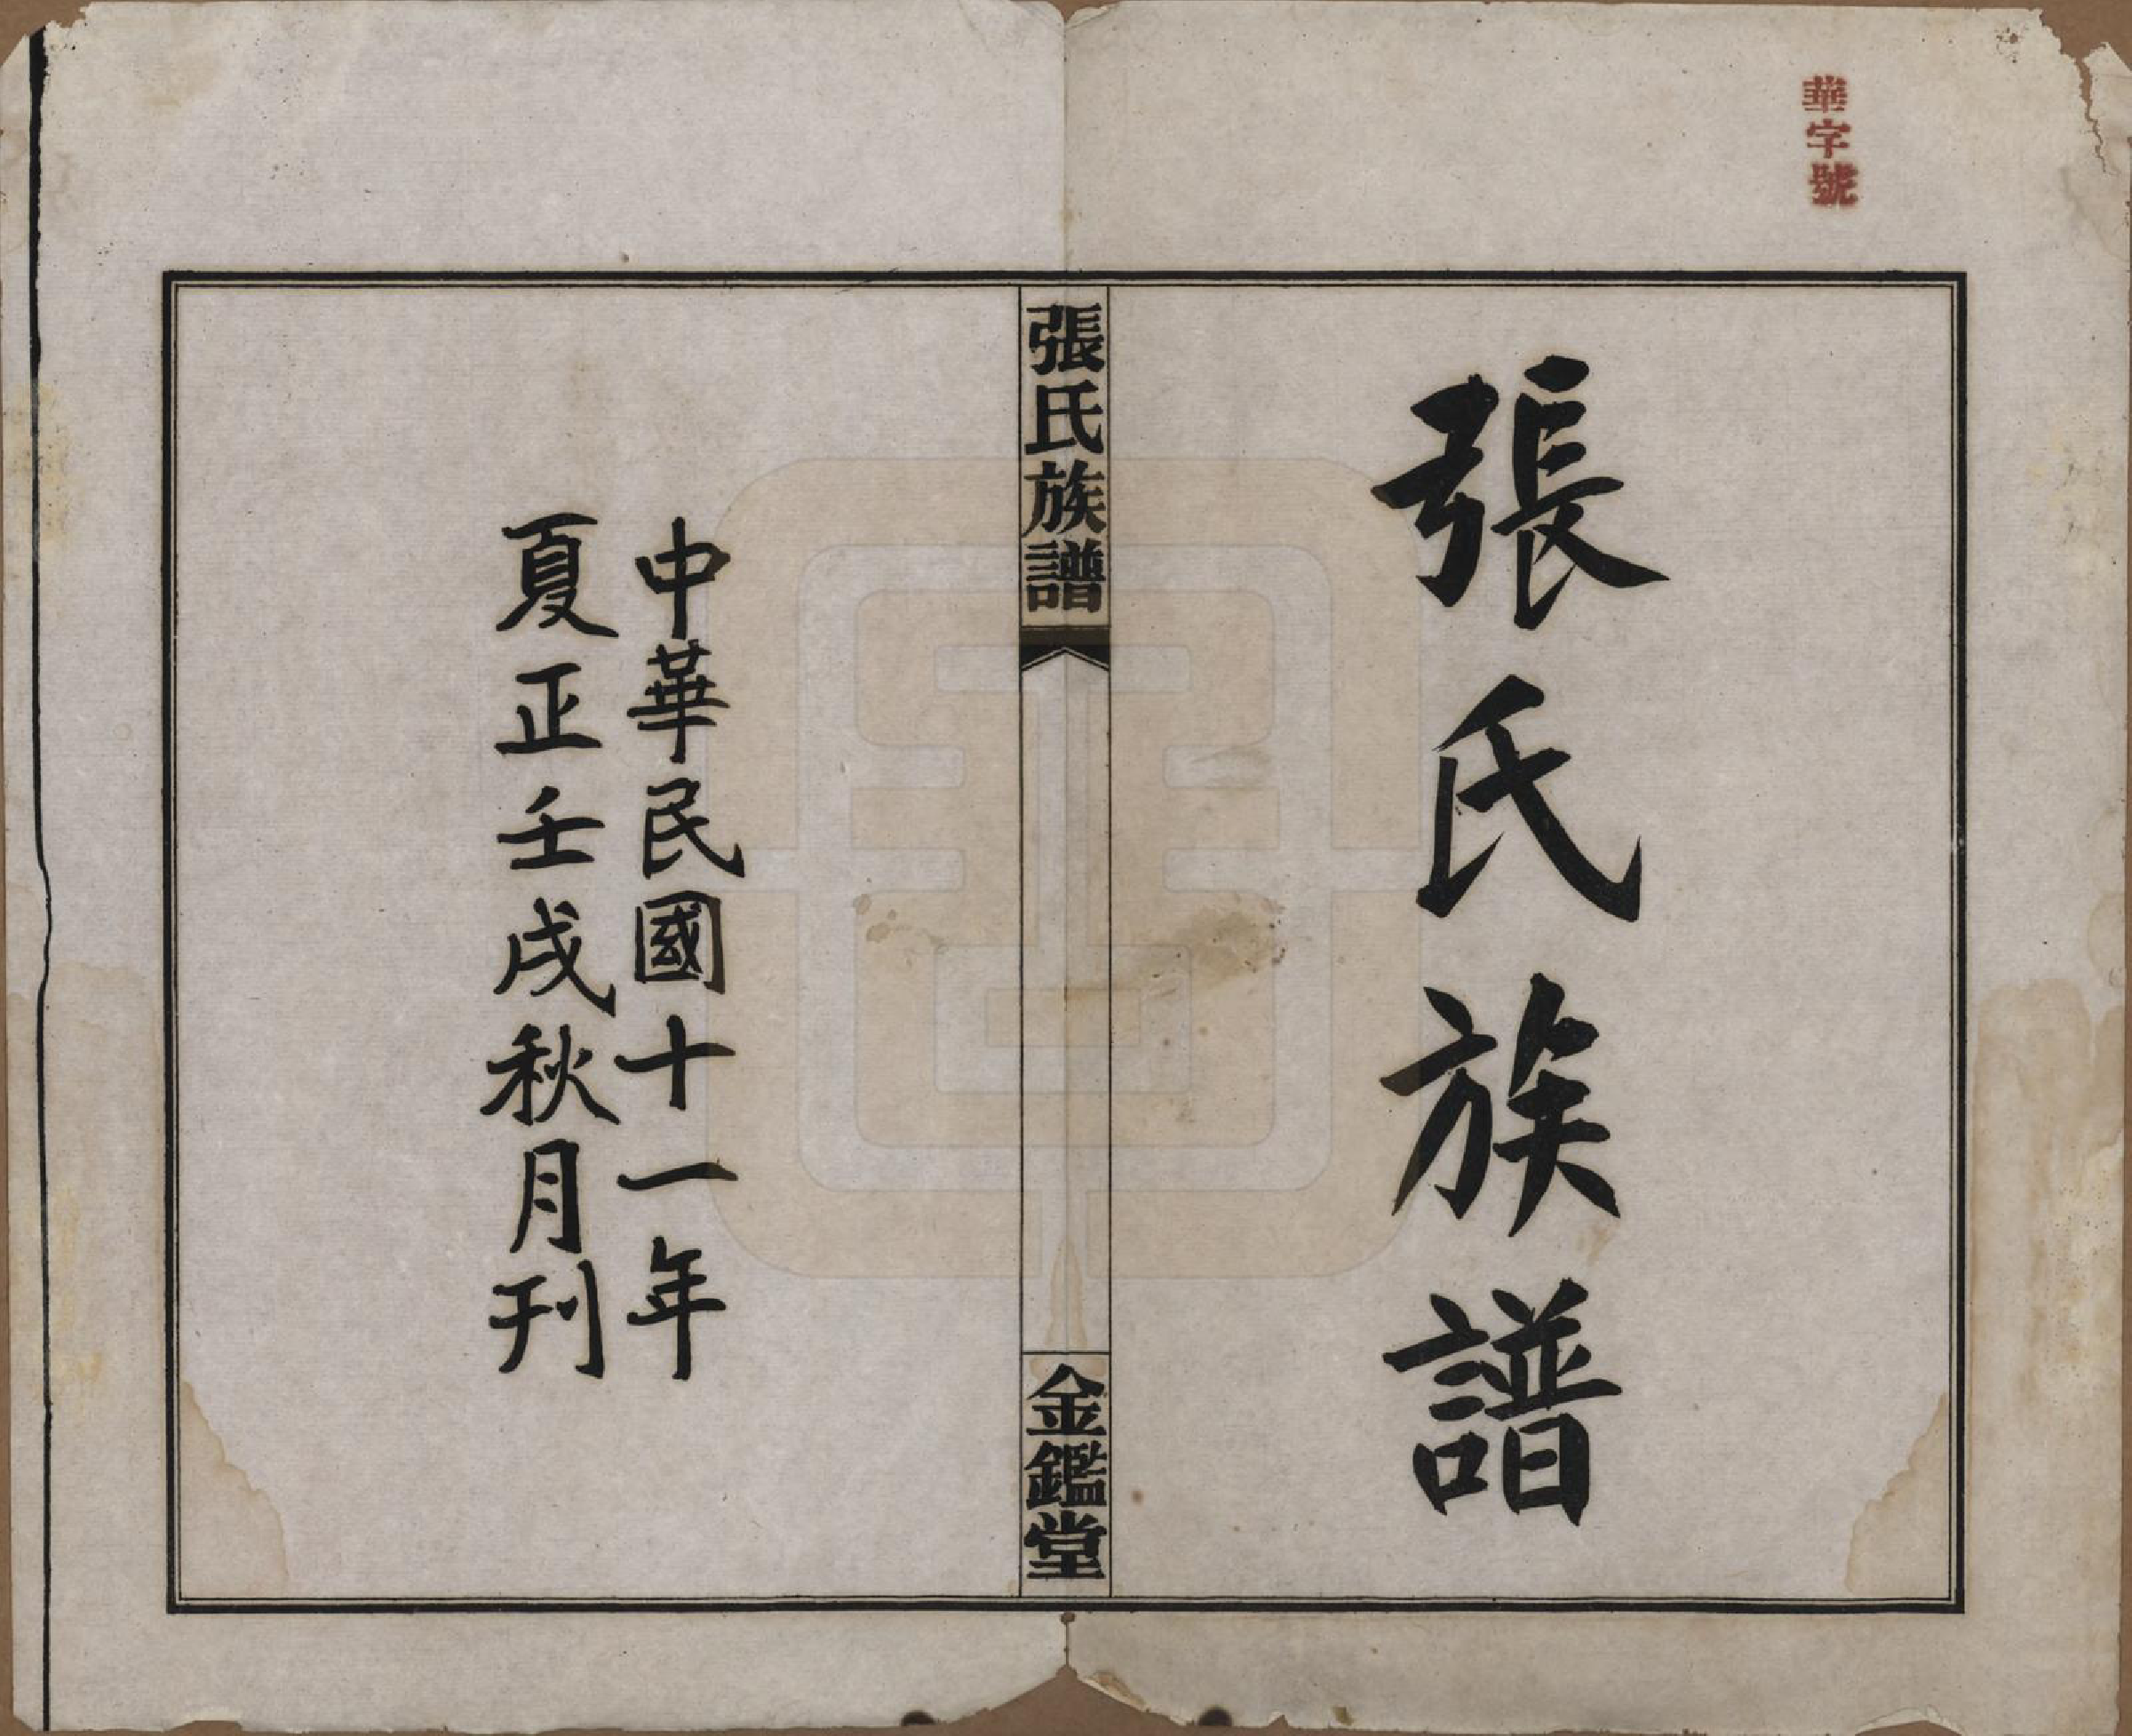 華字號
張氏族譜
張氏族譜
金鑑堂
中華民國十一年
夏正壬戌秋月刊